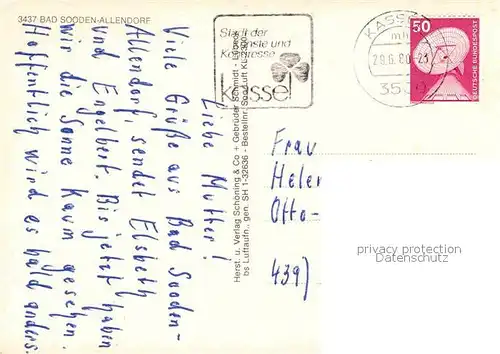 3437 BAD SOODEN-ALLENDORF
Liebe Mutter!
Viele Grüße aus Bad Sooden-
Allendorf, sendet Elsbeth
und Engelbert. Bis jetzt haben
wir die Sonne kaum gesehen.
Hoffentlich wird es bald anders.
Herst. u. Verlag Schöning & Co + Gebrüder Schmidt -
bs Luftaufn., gen. SH 1-32636 - Bestellnr.
Stadt der
Künste und
Kongresse
kassel
KASSEL
29.6.80-23
35
50
DEUTSCHE BUNDESPOST
Frau
Helen
Otto-
439)
privacy protection
Datenschutz